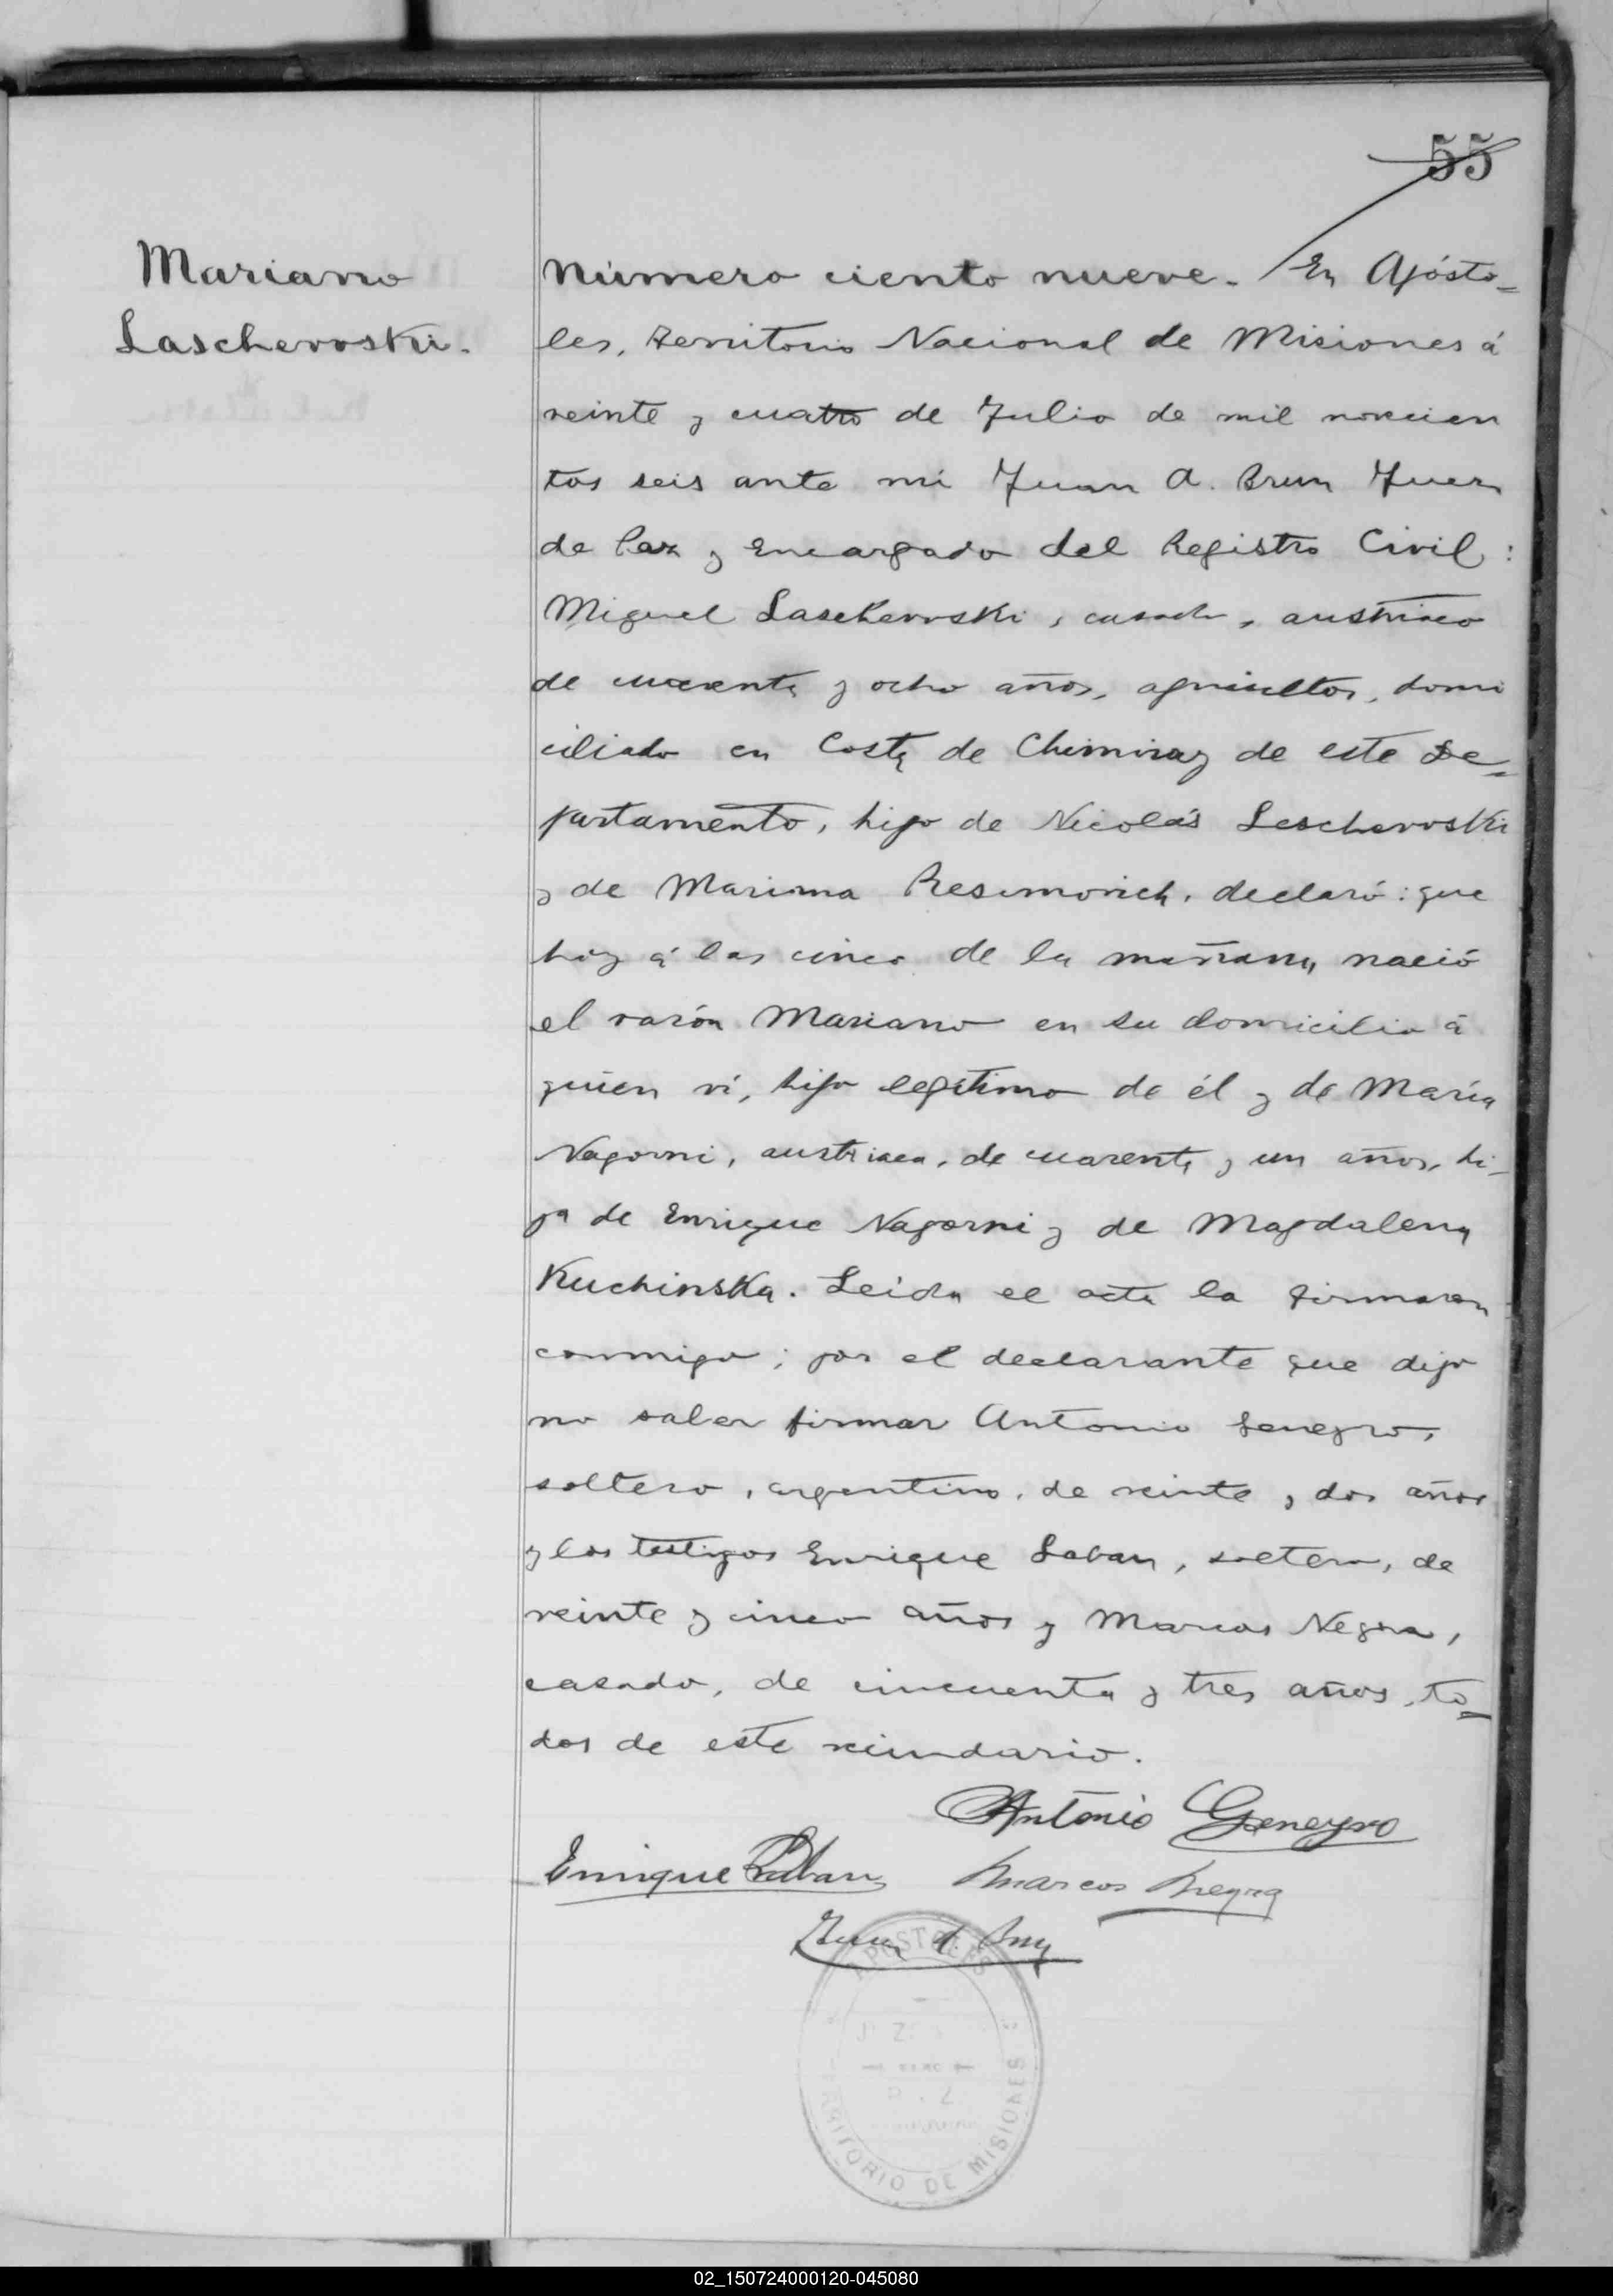 55
Mariano
Laschevoski.
Número ciento nueve. En Apósto=
les, territorio Nacional de Misiones á
veinte y cuatro de Julio de mil novecien
tos seis ante mi Juan A. Brun Juez
de Paz y encargado del Registro Civil:
Miguel Laschevoski, casado, austriaco
de cuarenta y ocho años, agricultor, domi
ciliado en Costa de Chimiray de este De=
partamento, hijo de Nicolás Leschevoski
y de Marima Resimovich, declaró: que
hoy á las cinco de la mañana nació
el varón Mariano en su domicilio á
quien ví, hijo legítimo de él y de María
Nagorni, austriaca, de cuarenta y un años, hi-
ja de Enrique Nagorni y de Magdalena
Kuchinska. Leida el acta la firmaron
conmigo; por el declarante que dijo
no saber firmar Antonio Geneyro,
soltero, argentino, de veinte y dos años
y los testigos Enrique Laban, soltero, de
veinte y cinco años y Marcos Negra,
casado, de cincuenta y tres años, to=
dos de este vecindario.
Antonio Geneyro
Enrique Laban Marcos Negra
Juan A. Brun
APOSTOLES
TERRITORIO DE MISIONES
02_150724000120-045080